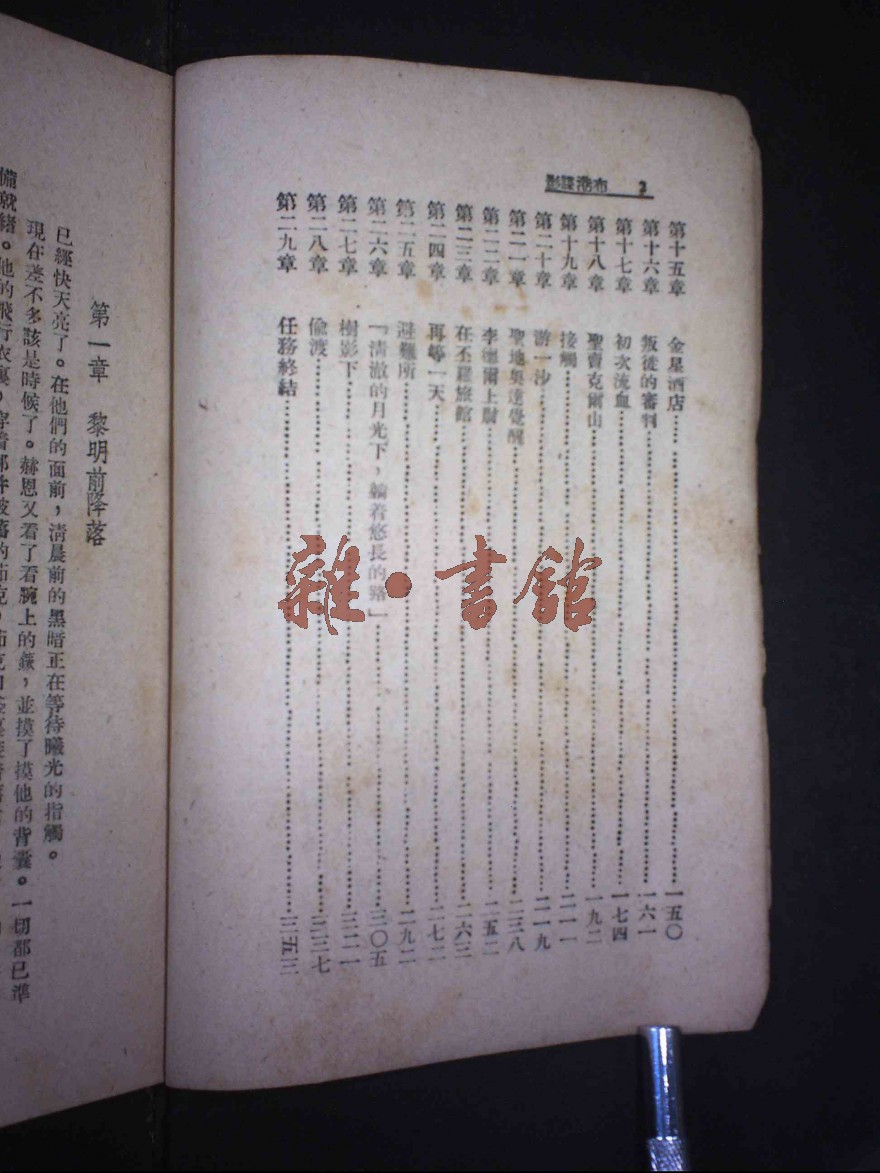 布港諜影 2
第十五章 金星酒店 一五〇
第十六章 叛徒的審判 一六一
第十七章 初次流血 一七四
第十八章 聖賣克爾山 一九二
第十九章 接觸 二一一
第二十章 游一沙 二一九
第二一章 聖地奧達覺醒 二三八
第二二章 李德爾上尉 二五二
第二三章 在丕羅旅館 二六三
第二四章 再等一天 二七二
第二五章 避難所 二九二
第二六章 「清澈的月光下，躺着悠長的路」 三〇五
第二七章 樹影下 三二一
第二八章 偷渡 三三七
第二九章 任務終結 三五三
雜·書館
第一章 黎明前降落
已經快天亮了。在他們的面前，清晨前的黑暗正在等待曦光的指觸。
現在差不多該是時候了。赫恩又看了看腕上的錶，並摸了摸他的背囊。一切都已準
備就緒。他的飛行衣裏，穿着那件破舊的